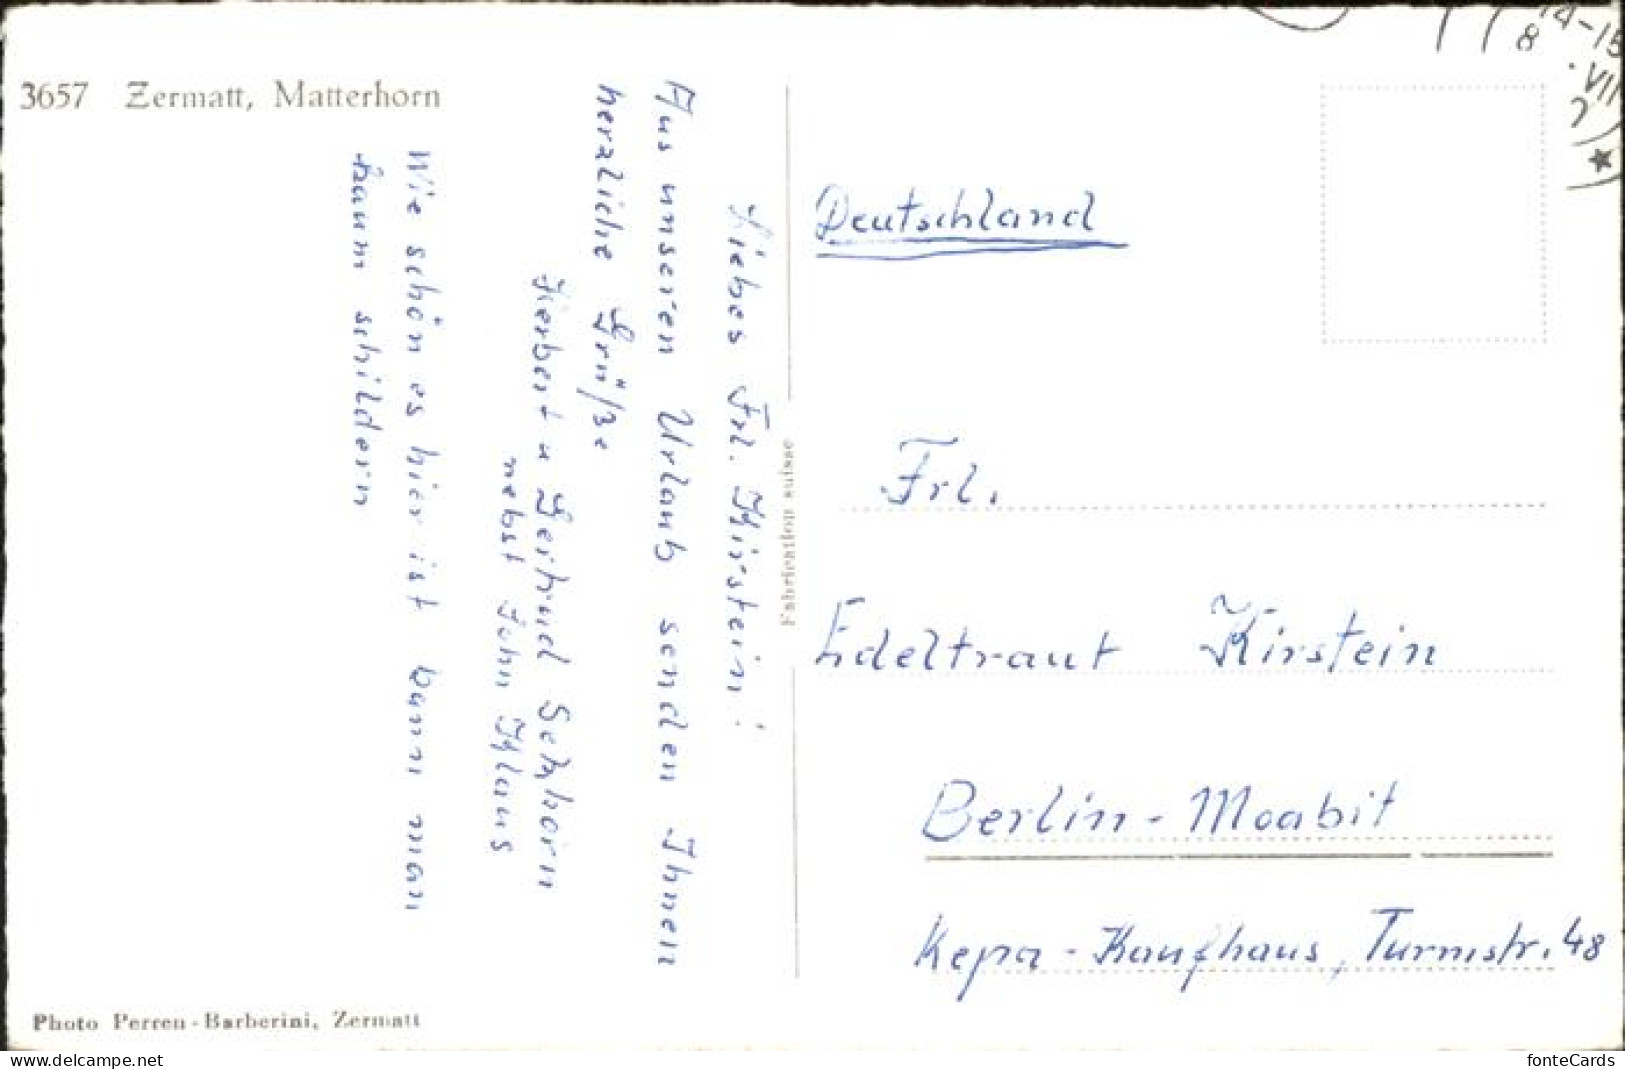 3657 Zermatt, Matterhorn
Liebes Frl. Kirstein!
Aus unseren Urlaub senden Ihnen
herzliche Grüße
Herbert u Gertrud
nebst Sohn Klaus
Wie schön es hier ist kann man
kaum schildern
Photo Perren-Barberini, Zermatt
Fabrication suisse
14-15
8
VII
Deutschland
Frl.
Edeltraut Kirstein
Berlin-Moabit
Kepa-Kaufhaus, Turmstr. 48
www.delcampe.net
fonteCards